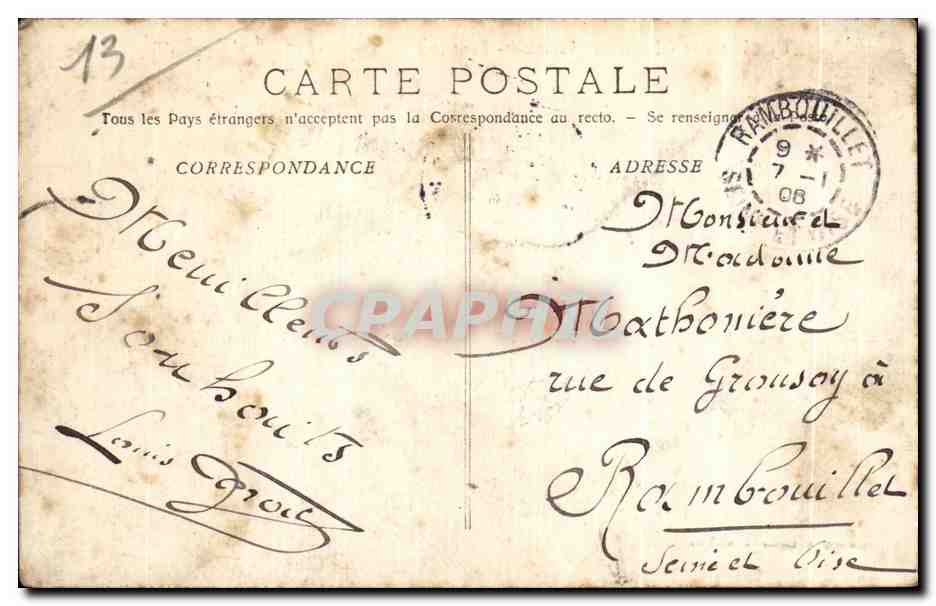 13
CARTE POSTALE
Tous les Pays étrangers n'acceptent pas la Correspondance au recto. - Se renseigner
CORRESPONDANCE
Meuilleurs
Souhaits
Louis
ADRESSE
RAMBOUILLET
9 *
7 - 1
08
Monsieur et
Madame
Mathonière
rue de Grousay à
Rambouillet
Seine et Oise
CPARHIL